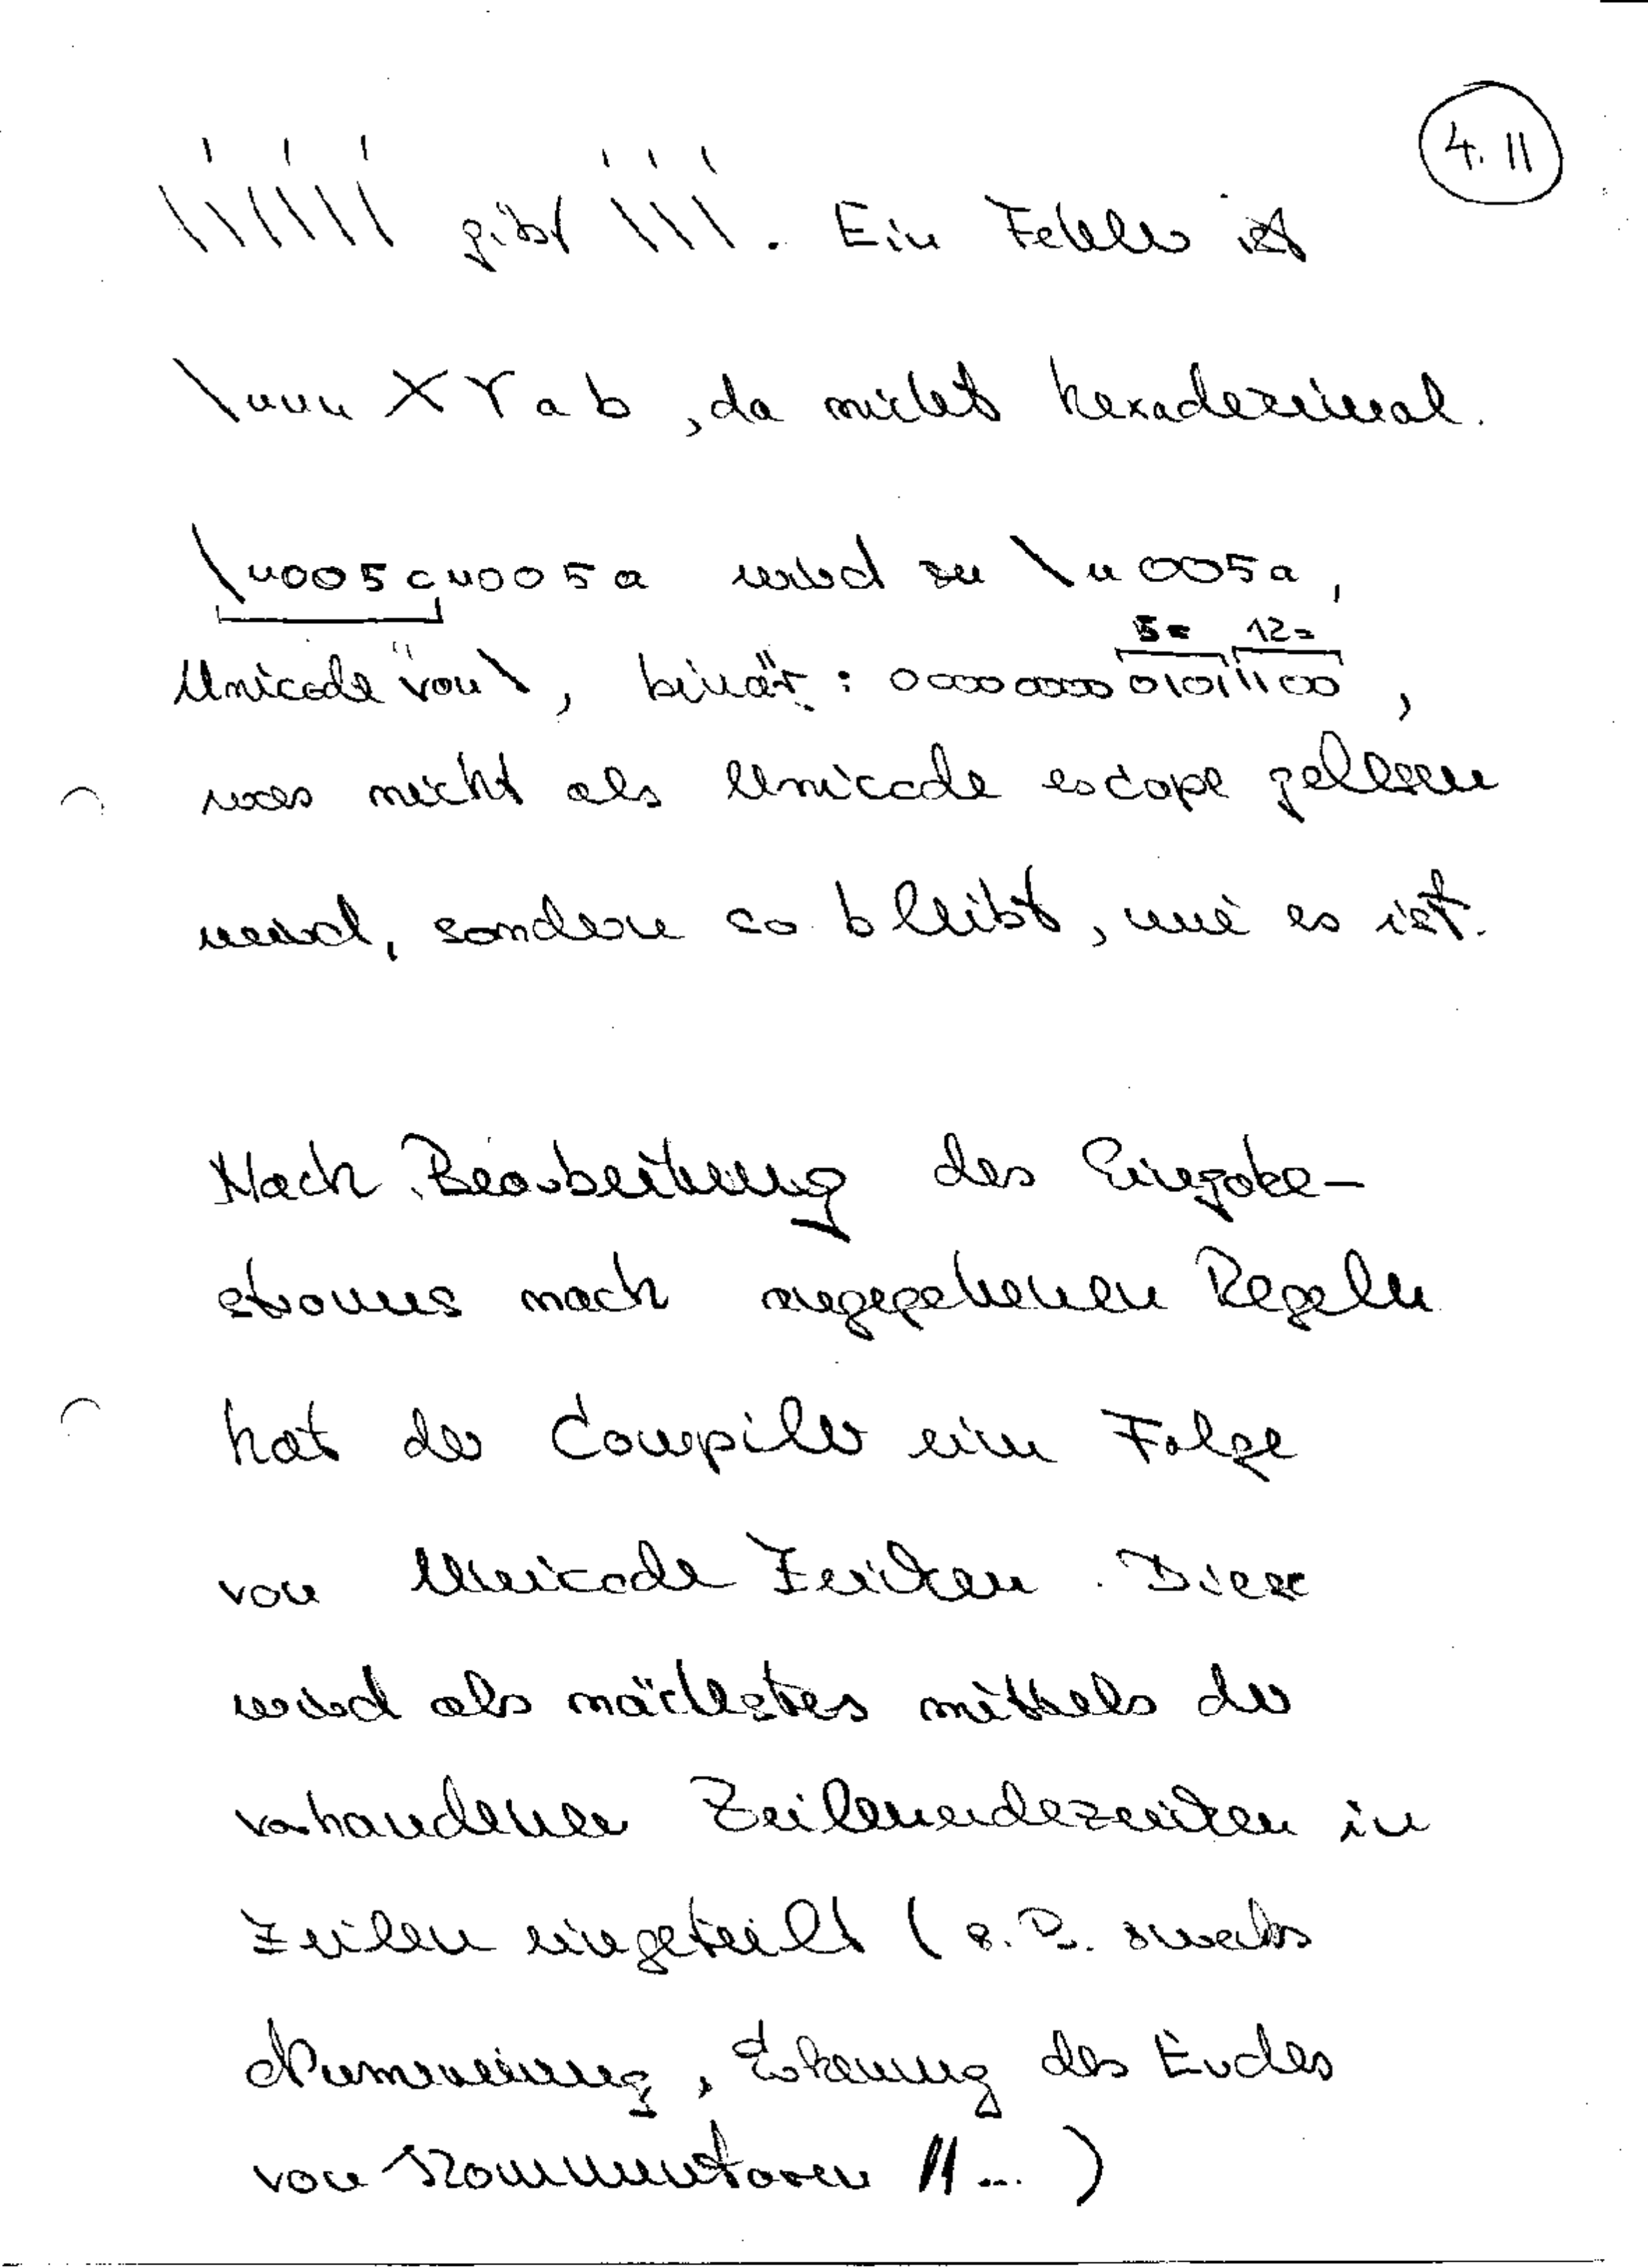 4.11
\\\\\\ gibt \\\. Ein Fehler ist
\uuu X Y a b, da nicht hexadezimal.
\u005cu005a wird zu \u005a,
5= 12=
Unicode von "\", binär: 0000 0000 0101 1100,
was nicht als Unicode escape gelesen
wird, sondern so bleibt, wie es ist.
Nach Bearbeitung des Eingabe-
stroms nach angegebenen Regeln
hat der Compiler eine Folge
von Unicode Zeichen. Diese
wird als nächstes mittels der
vorhandenen Zeilenendezeichen in
Zeilen eingeteilt (z.B. zwecks
Numerierung, Erkennung des Endes
von Kommentaren // ... )